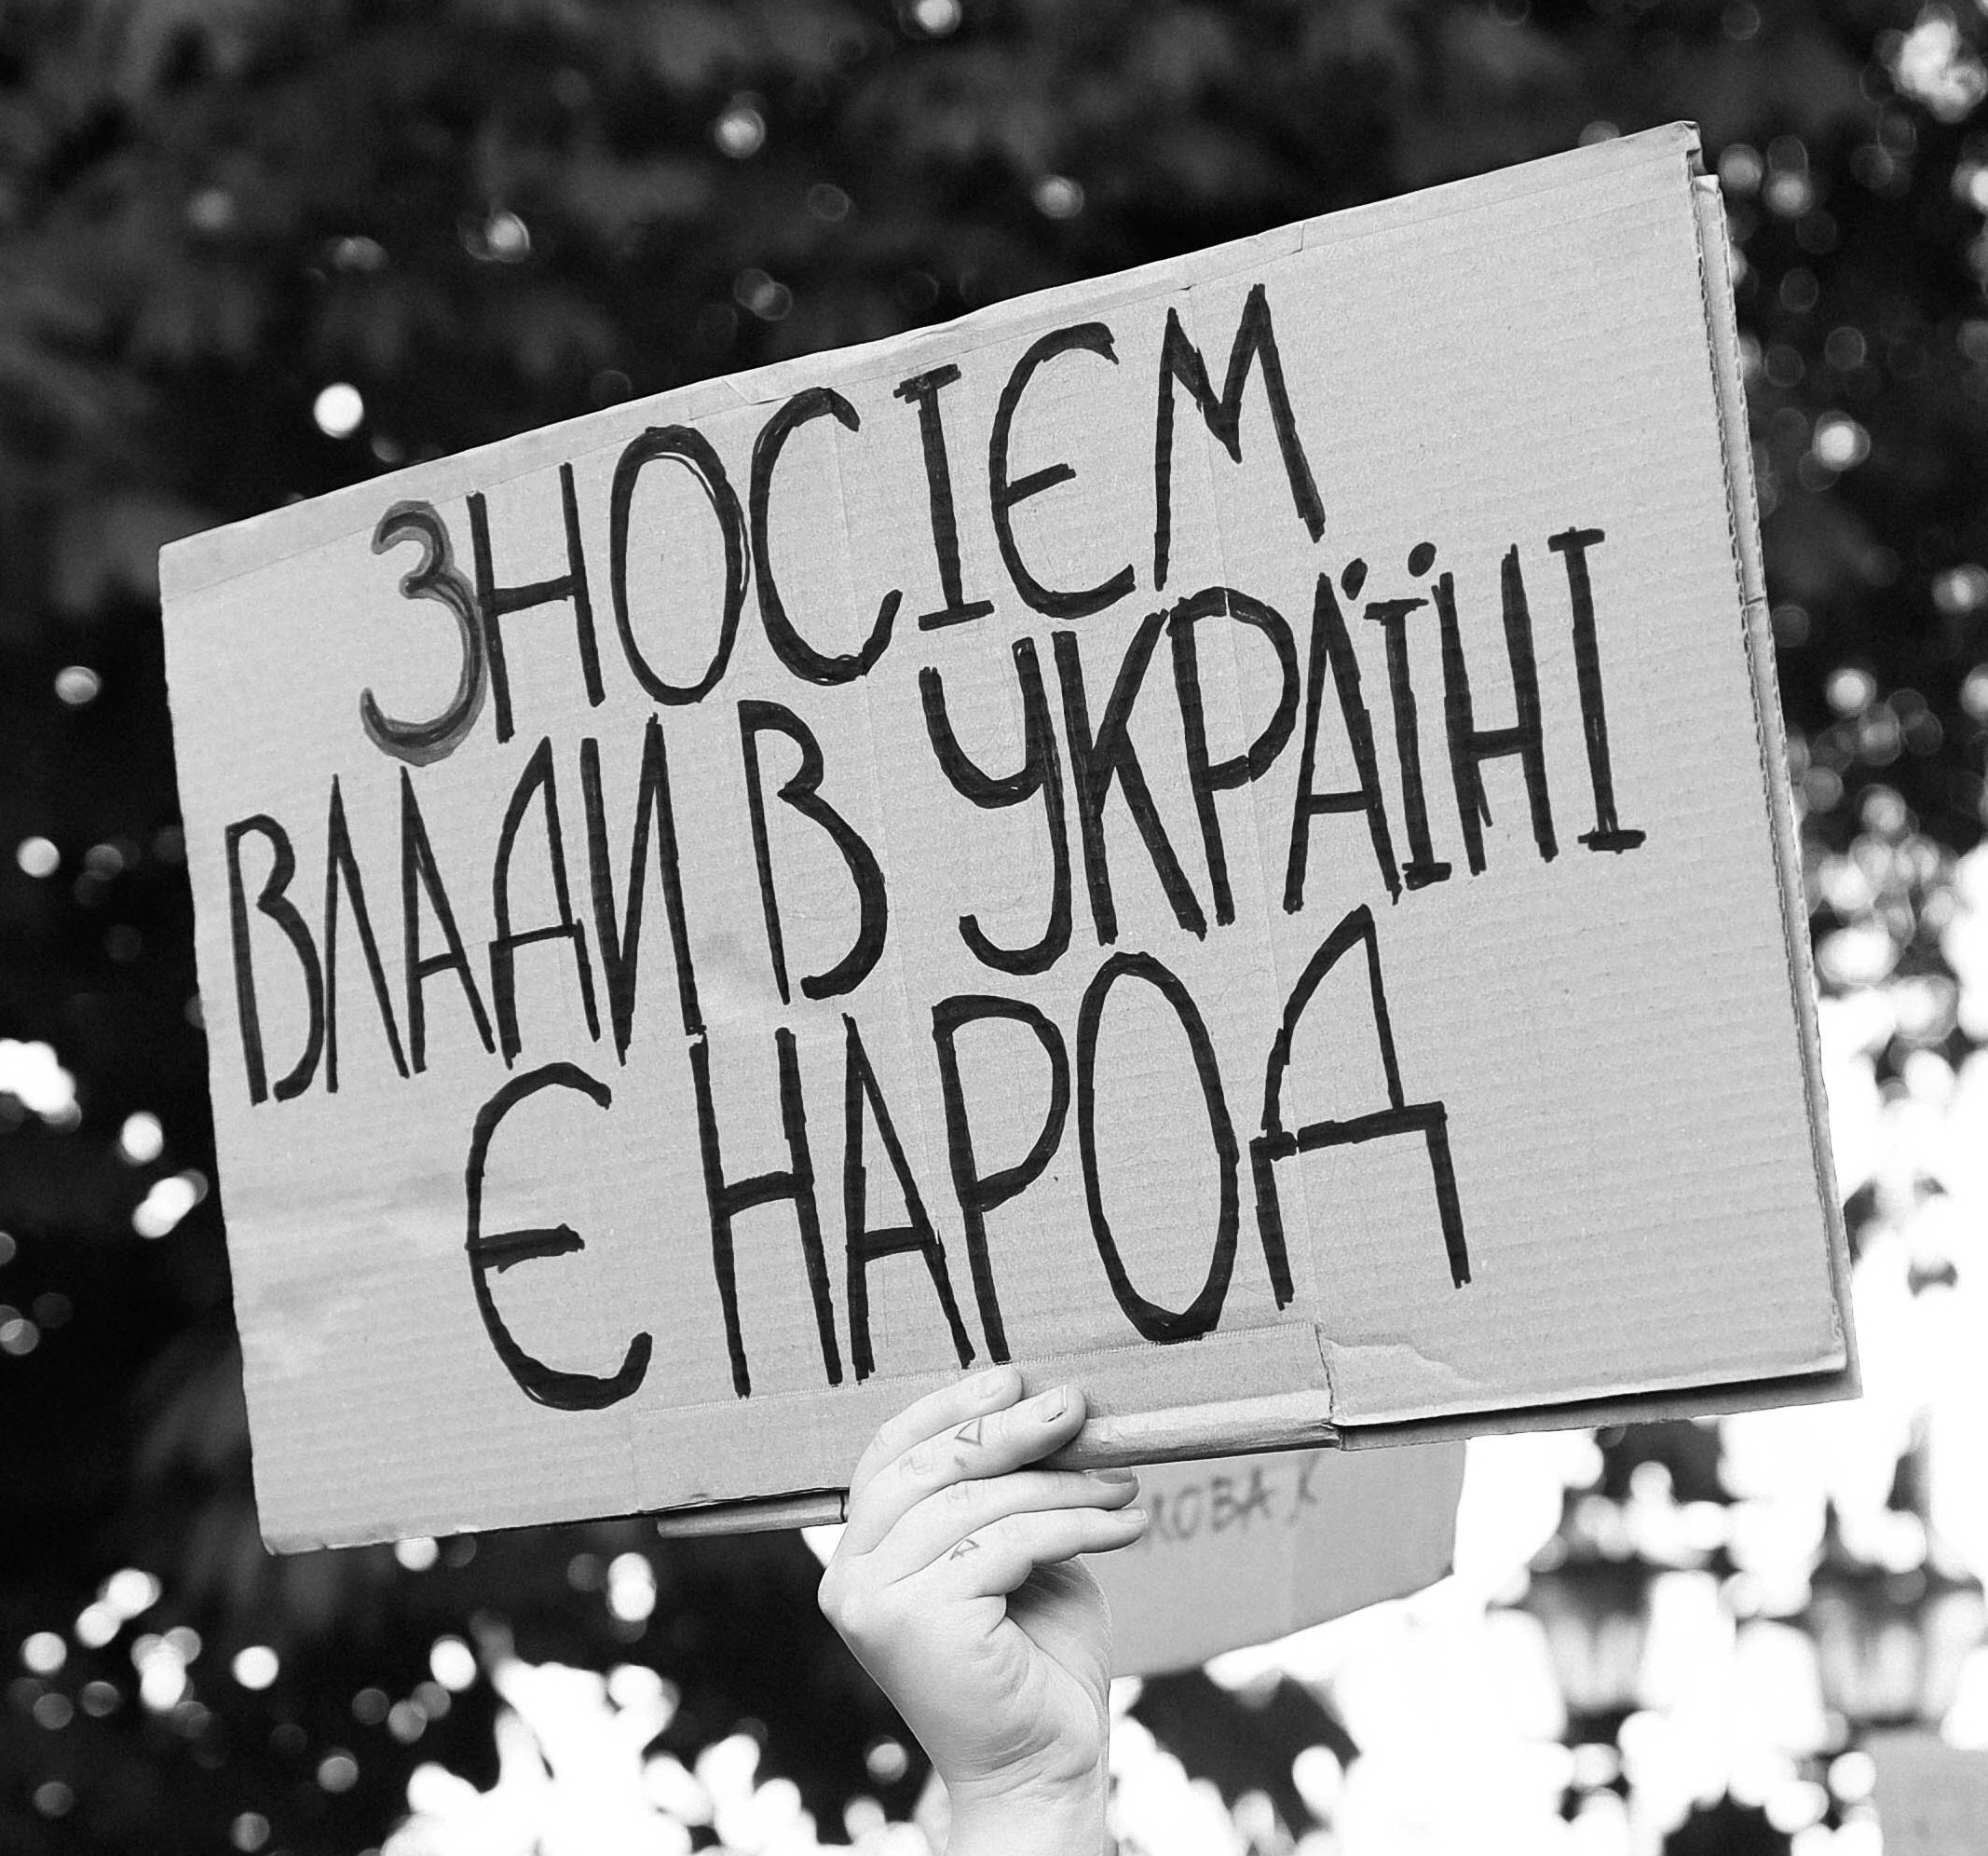 ЗНОСІЄМ
ВЛАДИ В УКРАЇНІ
Є НАРОД